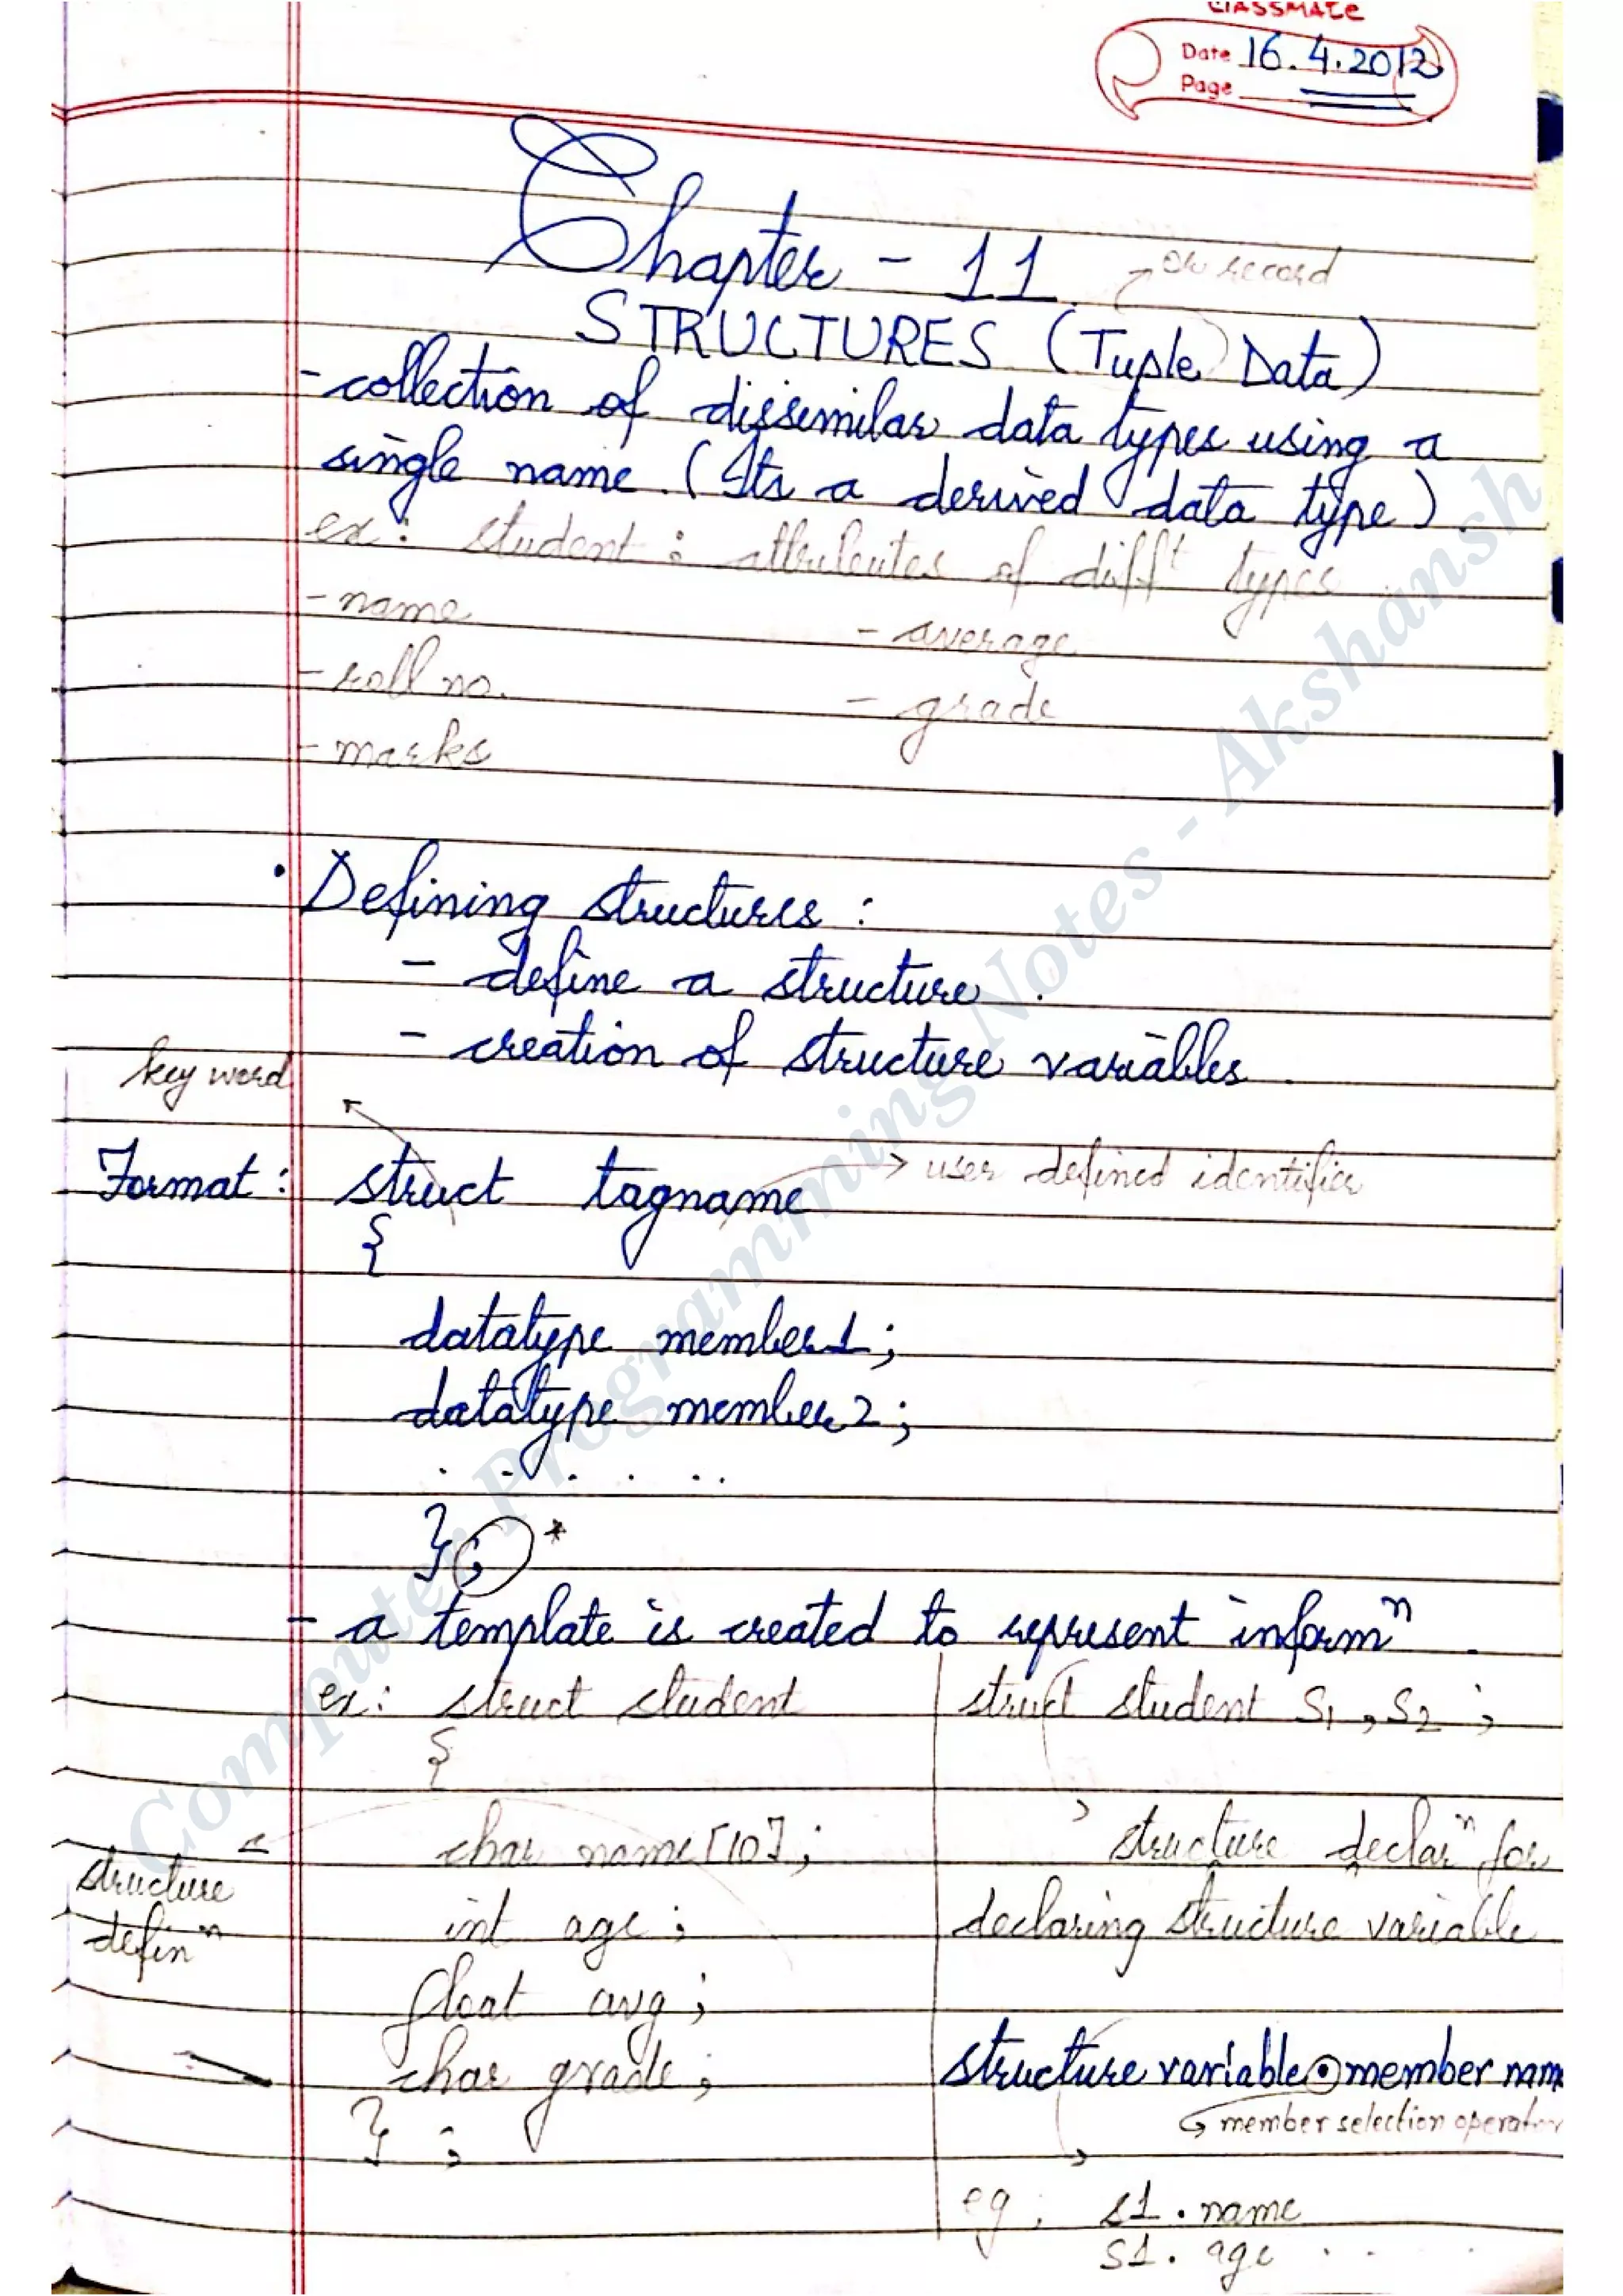 classmate
Date 16.4.2012
Page
Chapter - 11
or record
STRUCTURES (Tuple Data)
- collection of dissimilar data types using a
single name. (Its a derived data type)
ex: student : attributes of difft types
- name
- average
- roll no.
- grade
- marks
• Defining structures :
- define a structure.
- creation of structure variables.
key word
Format : struct tagname → user defined identifier
{
datatype member1;
datatype member2;
. . . . . .
}; *
- a template is created to represent informn.
ex: struct student
{
char name[10];
int age;
float avg;
char grade;
} ;
structure
definn
struct student S1, S2 ;
structure declarn for
declaring structure variable
structure variable . member nam
member selection operator
eg : s1 . name
s1 . age . . .
Computer Programming Notes - Akshansh